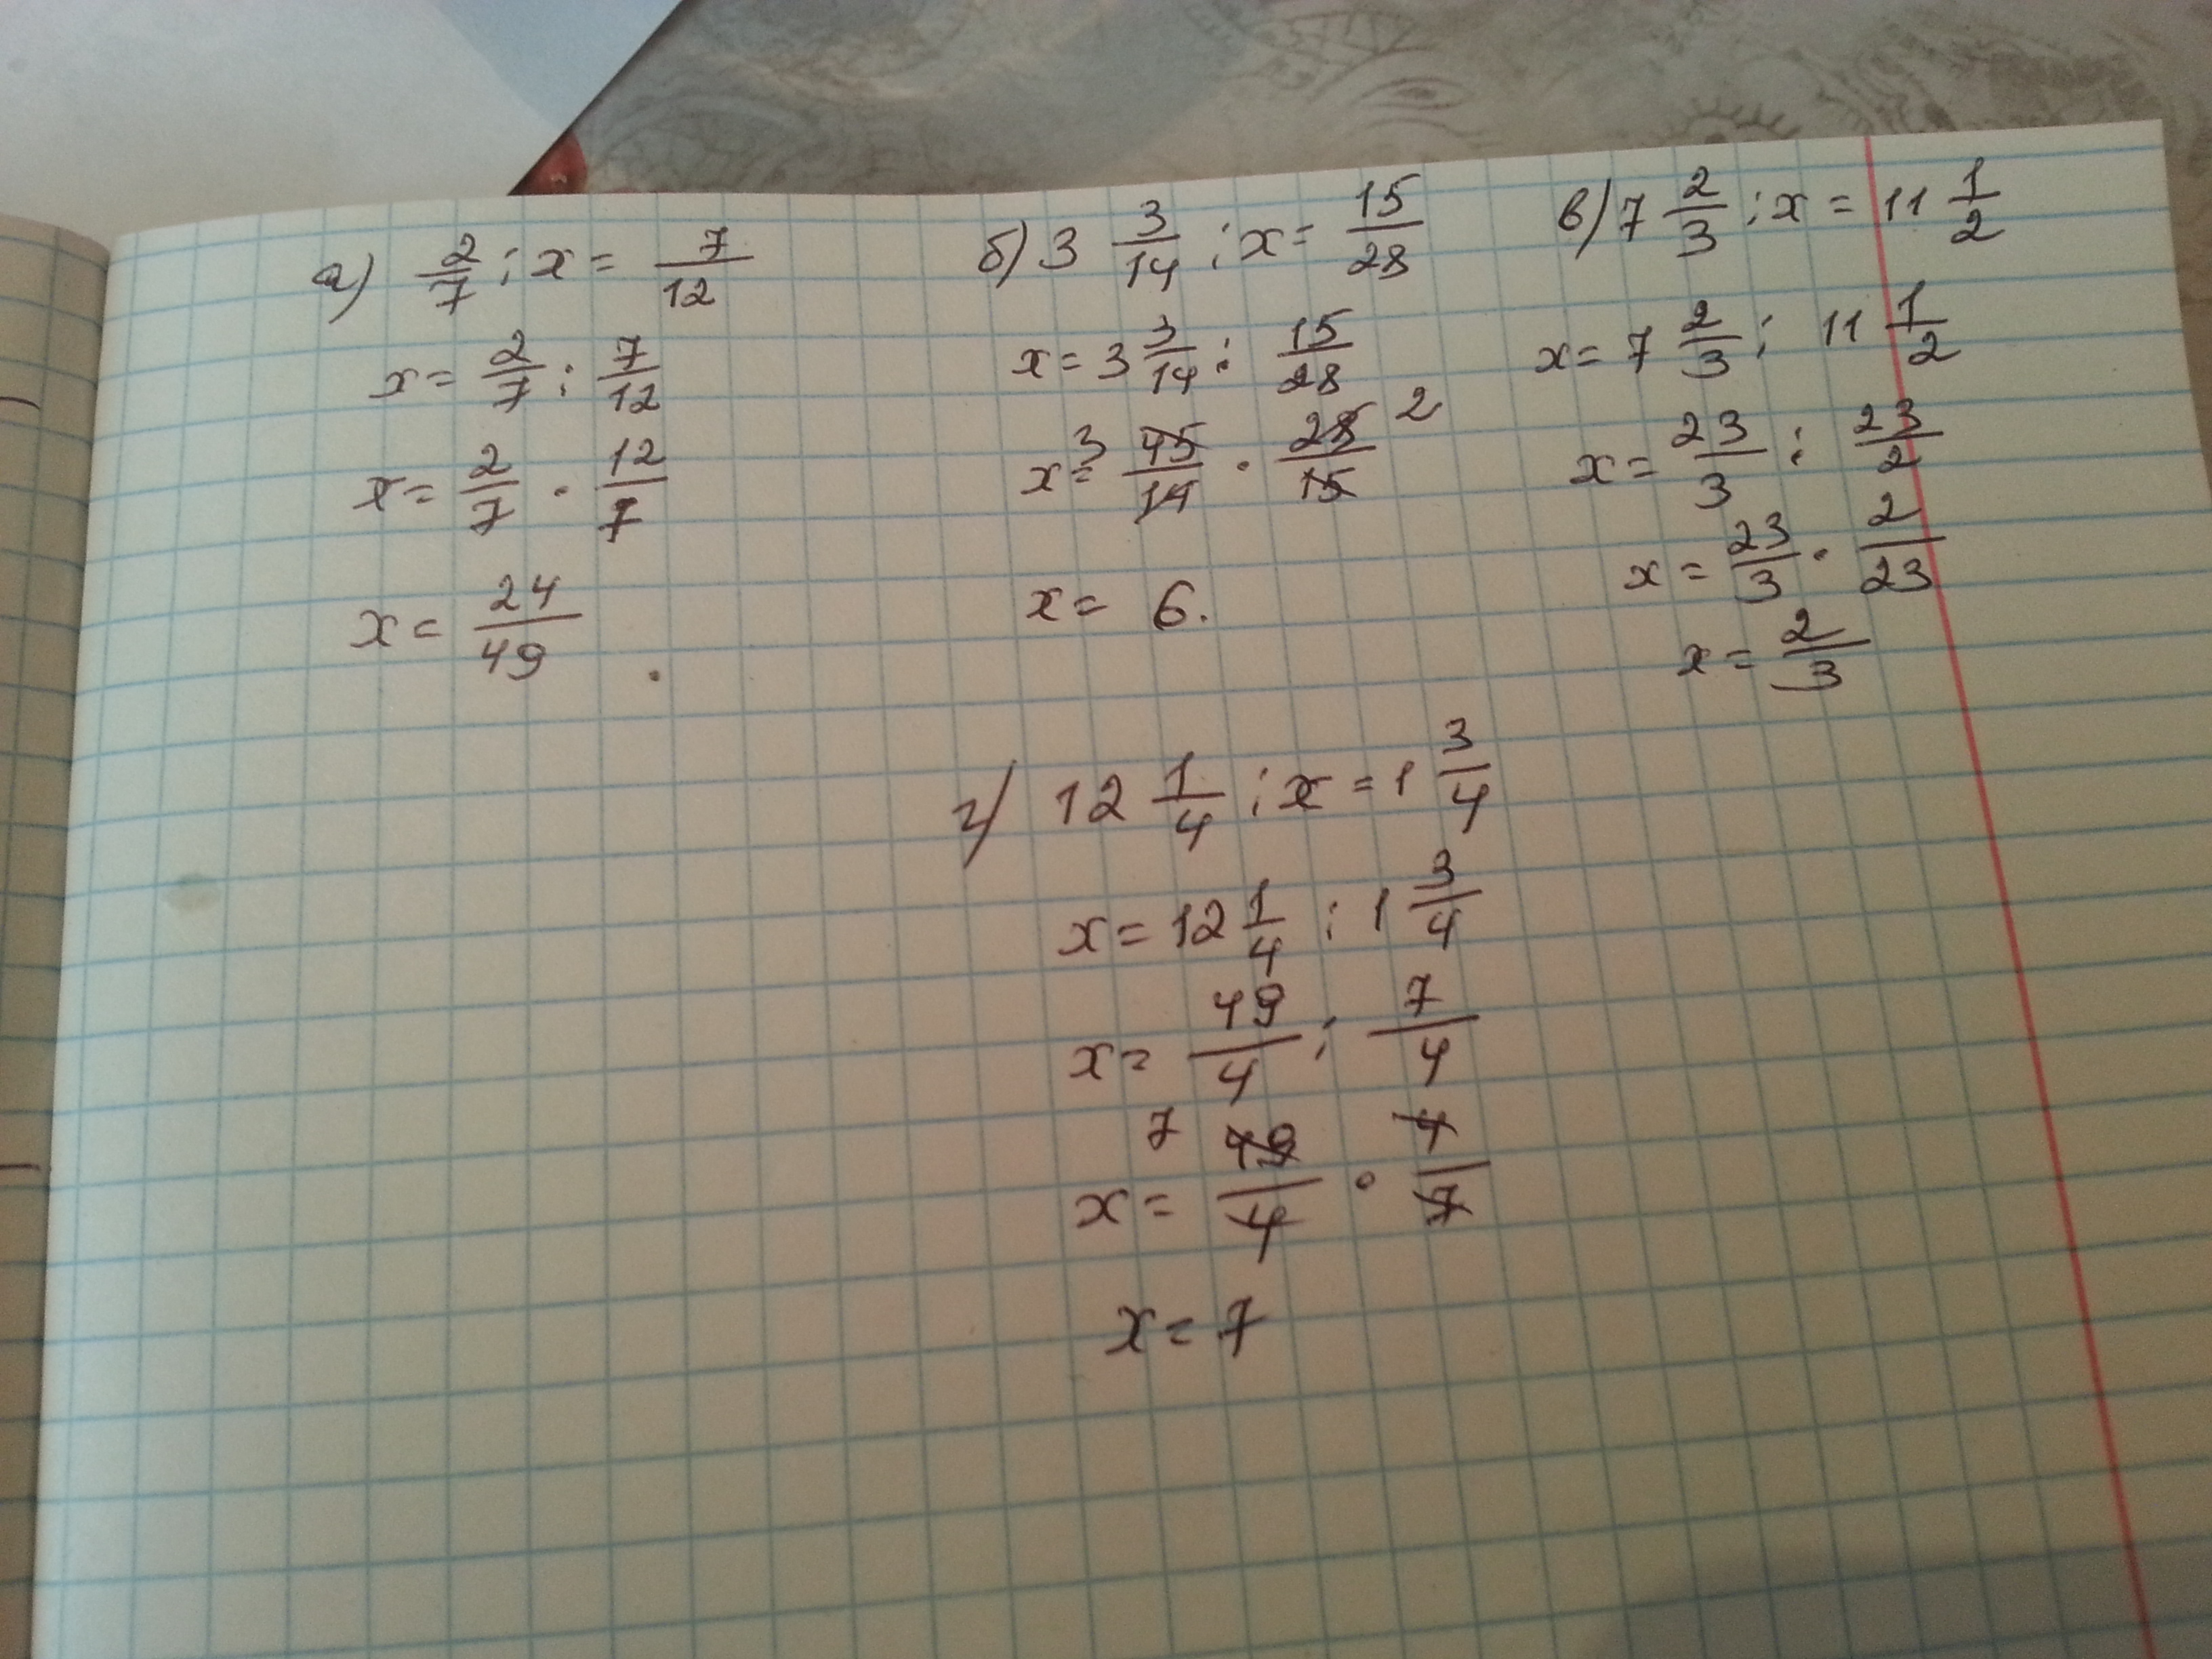 а) 2/7 : x = 7/12
x = 2/7 : 7/12
x = 2/7 · 12/7
x = 24/49 .
б) 3 3/14 : x = 15/28
x = 3 3/14 : 15/28
x = 3 45/14 · 28/15 2
x = 6.
в) 7 2/3 : x = 11 1/2
x = 7 2/3 : 11 1/2
x = 23/3 : 23/2
x = 23/3 · 2/23
x = 2/3
г) 12 1/4 : x = 1 3/4
x = 12 1/4 : 1 3/4
x = 49/4 : 7/4
x = 7 49/4 · 4/7
x = 7